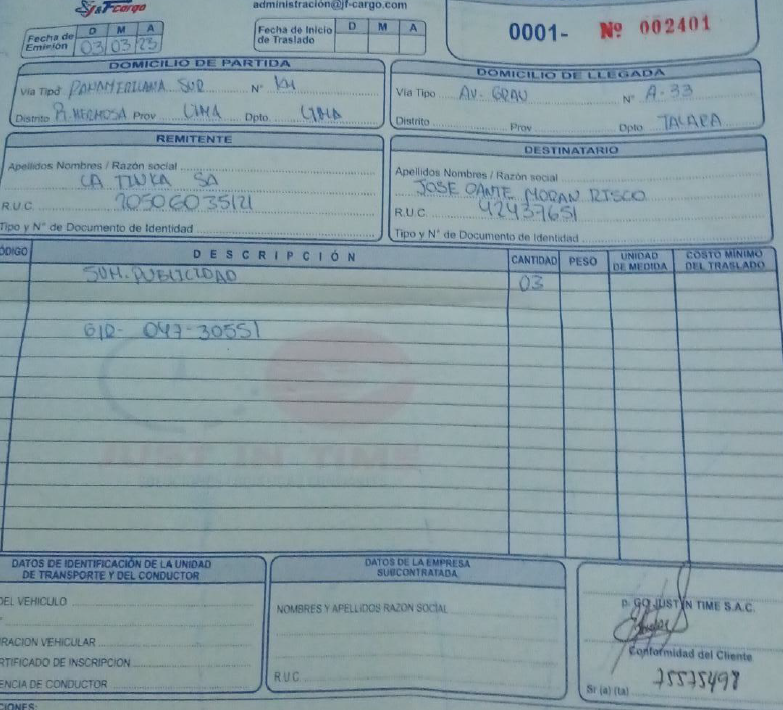 J&F cargo
administración@jf-cargo.com
Fecha de Emisión D M A
03 03 23
Fecha de Inicio de Traslado D M A
0001- Nº 002401
DOMICILIO DE PARTIDA
Vía Tipo PANAMERICANA SUR Nº KM
Distrito P. HERMOSA Prov LIMA Dpto LIMA
DOMICILIO DE LLEGADA
Vía Tipo AV. GRAU Nº A-33
Distrito Prov Dpto TALARA
REMITENTE
Apellidos Nombres / Razón social
LA TINKA SA
R.U.C. 20506035121
Tipo y Nº de Documento de Identidad
DESTINATARIO
Apellidos Nombres / Razón social
JOSE DANTE MORAN RISCO
R.U.C. 42437651
Tipo y Nº de Documento de Identidad
ÓDIGO DESCRIPCIÓN CANTIDAD PESO UNIDAD DE MEDIDA COSTO MÍNIMO DEL TRASLADO
SUM. PUBLICIDAD 03
G/R- 047-30551
JUST IN TIME
DATOS DE IDENTIFICACIÓN DE LA UNIDAD
DE TRANSPORTE Y DEL CONDUCTOR
DEL VEHICULO
RACION VEHICULAR
RTIFICADO DE INSCRIPCION
ENCIA DE CONDUCTOR
DATOS DE LA EMPRESA
SUBCONTRATADA
NOMBRES Y APELLIDOS RAZON SOCIAL
R.U.C.
P. GO JUST IN TIME S.A.C.
Conformidad del Cliente
75575498
Sr (a) (ta)
CIONES: